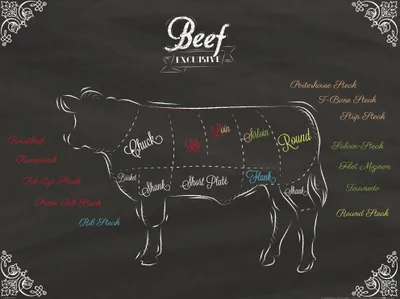 Beef
EXCLUSIVE
Porterhouse Steak
T-Bone Steak
Strip Steak
Chuck
Rib
Loin
Sirloin
Round
Roastbeef
Rumpsteak
Rib Eye Steak
Prime Rib Steak
Rib Steak
Saloon Steak
Filet Mignon
Tournedo
Round Steak
Brisket
Shank
Short Plate
Flank
Shank